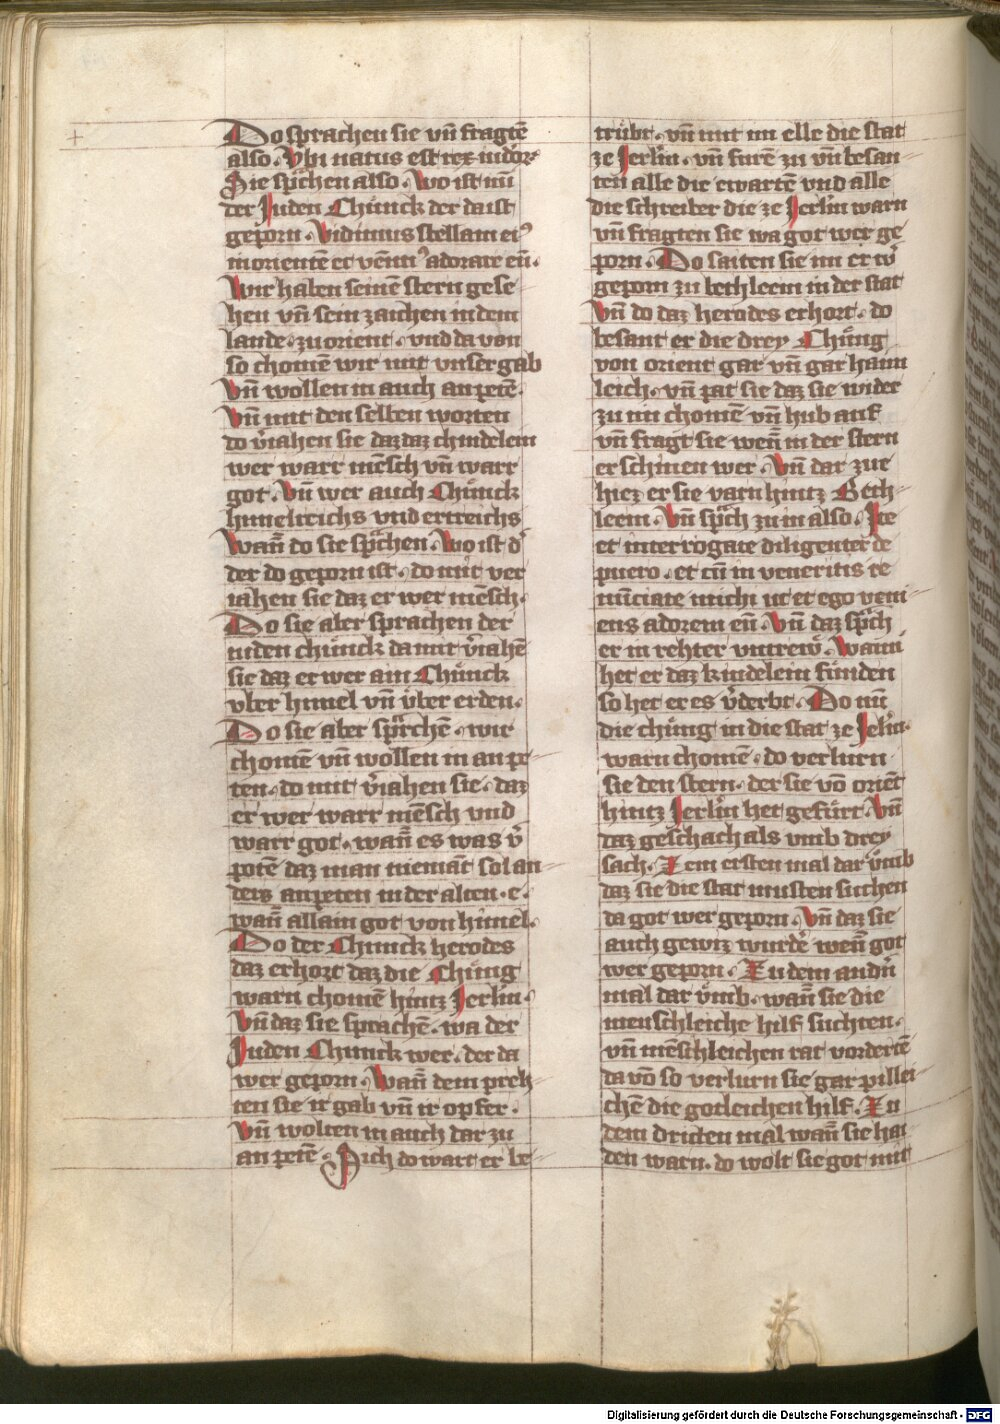 Do sprachen sie vn̄ fragtē
also. Vbi natus est rex iudeor̄
Sie sp̄chen also. Wo ist nu
der Juden Chünck der da ist
geporn. Vidimus stellam ei⁹
in orientē et vēnim⁹ adorare eū.
Wir haben seinē stern gese
hen vn̄ sein zaichen in dem
lande. zu orient. vnd da von
so chomen wir mit vnser gab
Vn̄ wollen in auch an petē.
Vn̄ mit den selben worten
do v̄iahen sie daz daz chindelein
wer warr mēsch vn̄ warr
got. Vn̄ wer auch Chünck
himelreichs vnd ertreichs
Wan̄ do sie sp̄chen. Wo ist d̄
der do geporn ist. do mit ver
iahen sie daz er wer mēsch.
Do sie aber sprachen der
iuden chünck da mit v̄iahē
sie daz er wer ain Chünck
vber himel vn̄ vber erden.
Do sie aber sp̄rchē. wir
chomen vn̄ wollen in an pe
ten. do mit v̄iahen sie. daz
er wer warr mēsch vnd
warr got. wan̄ es was v̄
potē daz man niemāt sol an
ders an peten in der alten. e.
wan̄ allain got von himel.
Do der Chunck herodes
daz erhort daz die Chüng
warn chomē hintz Jerlīm.
Vn̄ daz sie sprachē. wa der
Juden Chunck wer. der da
wer geporn. Wan̄ dem prch
ten sie ir gab vn̄ ir opfer.
Vn̄ wolten in auch dar zu
an petē. Sich do wart er be
trübt. vn̄ mit im elle die stat
ze Jerl̄m. vn̄ furē zu vn̄ besan
ten alle die ewartē vnd alle
die schreiber die ze Jerl̄m warn
vn̄ fragten sie wa got wer ge
porn. Do saiten sie im er w̄
geporn zu bethleem in der stat
Vn̄ do daz herodes erhort. do
besant er die drey Chüng
von orient gar vn̄ gar haim
leich. vn̄ pat sie daz sie wider
zu im chomē vn̄ hub auf
vn̄ fragt sie wen̄ in der stern
erschinen wer. Vn̄ dar zue
hiez er sie varn hintz Beth
leem. Vn̄ sp̄ch zu in also. Ite
et interrogate diligenter de
puero. et cū inveneritis re
nūciate michi ut et ego veni
ens adorem eū. Vn̄ daz sp̄ch
er in rehter vntrew. Wann
het er daz kindelein funden
so het er es v̄derbt. Do nu
die chüng in die stat ze Jerl̄m.
warn chomē. do verlurn
sie den stern. der sie vō oriēt
hintz Jerl̄m het gefürt. Vn̄
daz geschach als vmb drey
sach. Zem ersten mal dar v̄mb
daz sie die stat musten suchen
da got wer geporn. Vn̄ daz sie
auch gewiz wurdē wen̄ got
wer geporn. Zu dem andn̄
mal dar v̄mb. wan̄ sie die
menschleiche hilf suchten.
vn̄ mēschleichen rat vordertē
da vō so verlurn sie gar pillei
chē die gotleichen hilf. Zu
dem dritten mal wan̄ sie hai
den warn. do wolt sie got mit
Digitalisierung gefördert durch die Deutsche Forschungsgemeinschaft - DFG